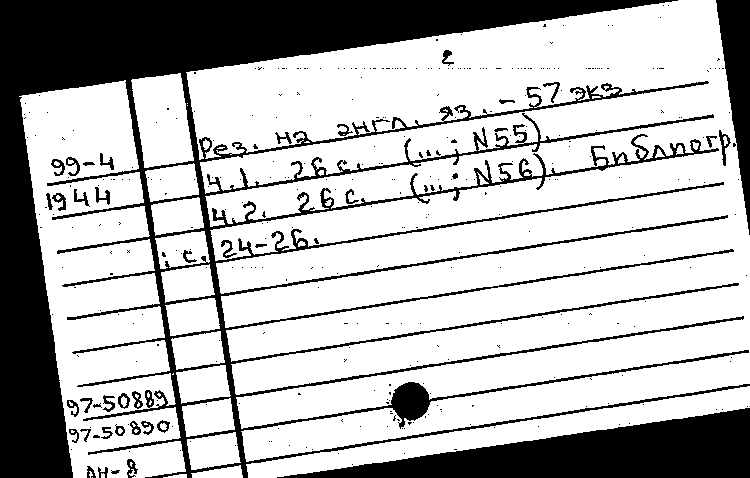 2
Рез. на англ. яз. - 57 экз.
99-4
Ч.1. 26 с. (...; N55).
1944
Ч.2. 26 с. (...; N56). Библиогр.
: с. 24-26.
97-50889
97-50890
АН-8